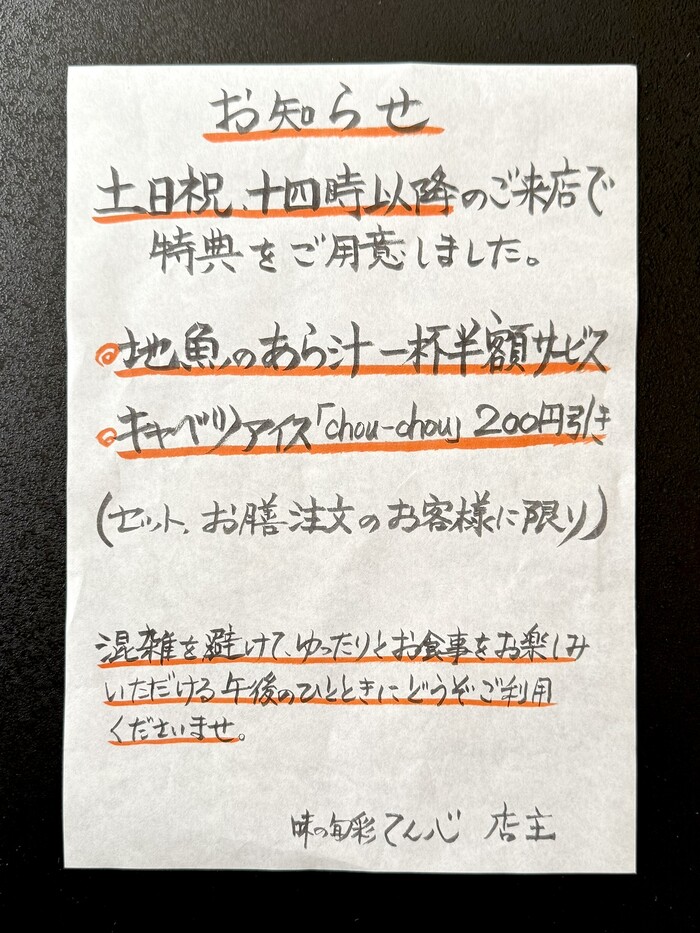 お知らせ
土日祝、十四時以降のご来店で
特典をご用意しました。
地魚のあら汁一杯半額サービス
キャベツアイス「chou-chou」200円引き
(セット、お膳注文のお客様に限り)
混雑を避けて、ゆったりとお食事をお楽しみ
いただける午後のひとときにどうぞご利用
くださいませ。
味の旬彩てん心 店主